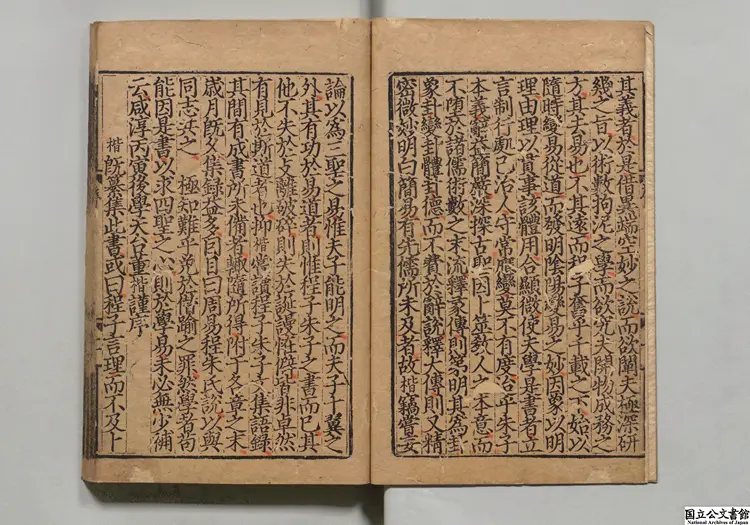 其義者於是借異端空妙之說而欲闡夫極深研
幾之旨以術數拘泥之學而欲究夫開物成務之
方其去易也不其遠而程子奮乎千載之下始以
隨時變易從道而發明陰陽變易之妙因象以明
理由理以貫事該體用合顯微使夫學是書者立
言制行處己治人守常應變莫不有度合乎朱子
本義辭義簡嚴深探古聖因卜筮教人之本意而
不墮於諸儒術數之末流釋彖傳則第明其為卦
象卦變卦體卦德而不費於辭說釋大傳則又精
密微妙明白簡易有先儒所未及者故楷竊嘗妄
論以為三聖之易惟夫子能明之而夫子十翼之
外其有功於易道者則惟程子朱子之書而已其
他不失於支離破碎則失於誕謾惟誕皆非卓然
有見於斯道者也抑楷嘗讀程子朱子文集語錄
其間有成書所未備者輒遁所得附于各章之末
歲月既久集錄益多因目曰周易程朱氏說以與
同志共之極知難乎免於僭踰之罪然學者苟
能因是書以求四聖之心則於學易未必無少補
云咸淳丙寅後學天台董楷謹序
楷既纂集此書或曰程子言理而不及卜
国立公文書館
National Archives of Japan